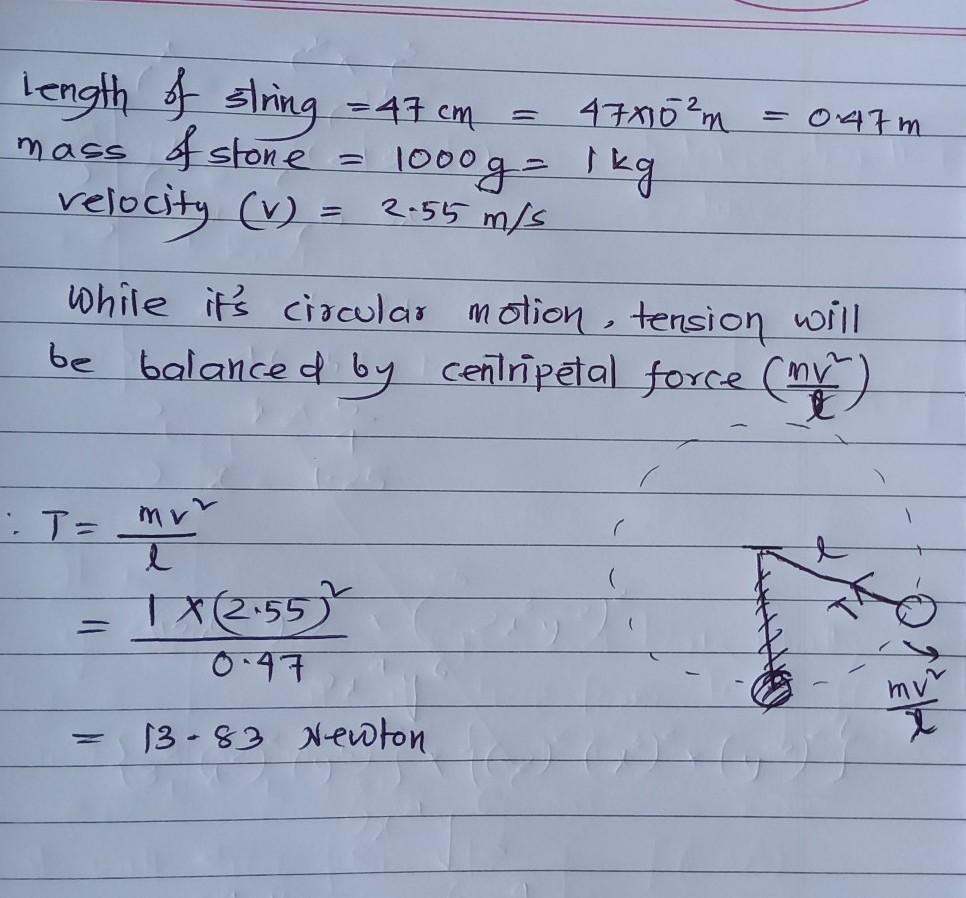 Length of string = 47 cm = 47×10⁻²m = 0.47 m
mass of stone = 1000g = 1 kg
velocity (v) = 2.55 m/s
While it's circular motion, tension will
be balanced by centripetal force (mv²/l)
∴ T = mv²/l
= 1 × (2.55)²/0.47
= 13.83 Newton
l
T
mv²/l